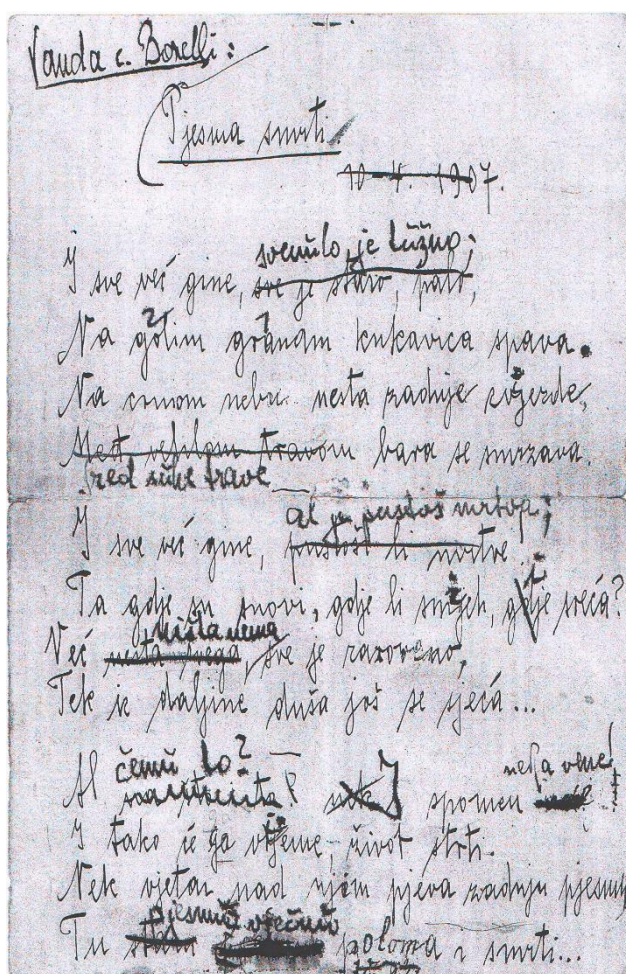 Vanda c. Borelli:
Pjesma smrti.
10-4. 1907.
svenulo, je tužno;
I sve već gine, sve je staro, palo,
2 1
Na golim granam kukavica spava.
Na crnom nebu nesta zadnje zvijezde,
travom bara se smrzava.
Sred suhe trave
al je pustoš mrtva;
I sve već gine, pustoš li mrtve
Ta gdje su snovi, gdje li smijeh, gdje sreća?
ništa nema
Već nesta svega, sve je razoreno,
Tek iz daljine duša još se sjeća...
čemu to? neka vene!
Al I spomen
I tako će ga vrijeme, život strti.
Nek vjetar nad njim pjeva zadnju pjesmu
pjesmu vječnu
Tu staru poloma i smrti...